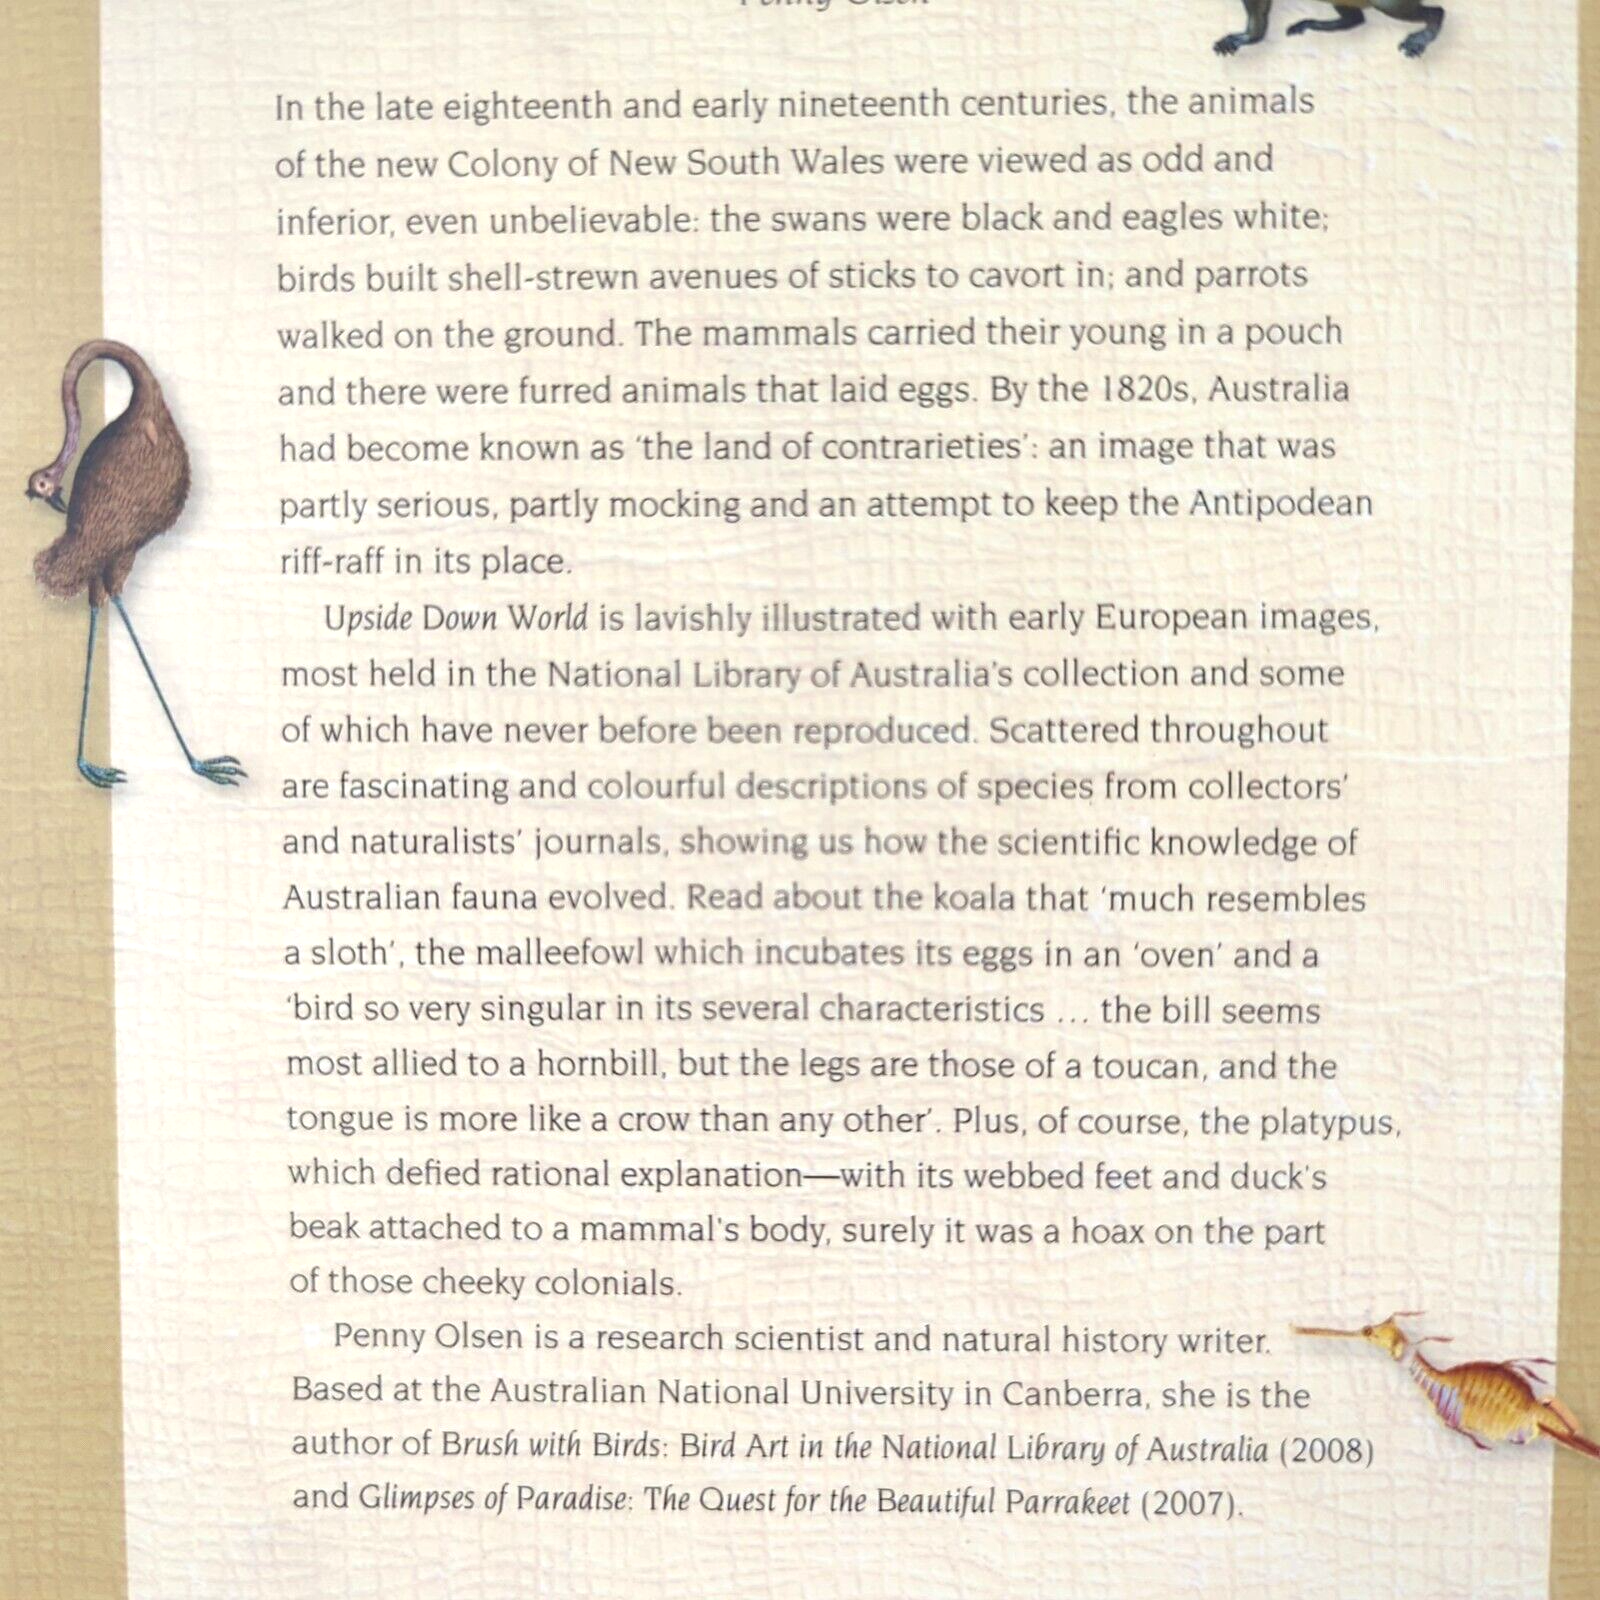 Penny Olsen
In the late eighteenth and early nineteenth centuries, the animals
of the new Colony of New South Wales were viewed as odd and
inferior, even unbelievable: the swans were black and eagles white;
birds built shell-strewn avenues of sticks to cavort in; and parrots
walked on the ground. The mammals carried their young in a pouch
and there were furred animals that laid eggs. By the 1820s, Australia
had become known as ‘the land of contrarieties’: an image that was
partly serious, partly mocking and an attempt to keep the Antipodean
riff-raff in its place.
Upside Down World is lavishly illustrated with early European images,
most held in the National Library of Australia’s collection and some
of which have never before been reproduced. Scattered throughout
are fascinating and colourful descriptions of species from collectors’
and naturalists’ journals, showing us how the scientific knowledge of
Australian fauna evolved. Read about the koala that ‘much resembles
a sloth’, the malleefowl which incubates its eggs in an ‘oven’ and a
‘bird so very singular in its several characteristics ... the bill seems
most allied to a hornbill, but the legs are those of a toucan, and the
tongue is more like a crow than any other’. Plus, of course, the platypus,
which defied rational explanation—with its webbed feet and duck's
beak attached to a mammal's body, surely it was a hoax on the part
of those cheeky colonials.
Penny Olsen is a research scientist and natural history writer.
Based at the Australian National University in Canberra, she is the
author of Brush with Birds: Bird Art in the National Library of Australia (2008)
and Glimpses of Paradise: The Quest for the Beautiful Parrakeet (2007).